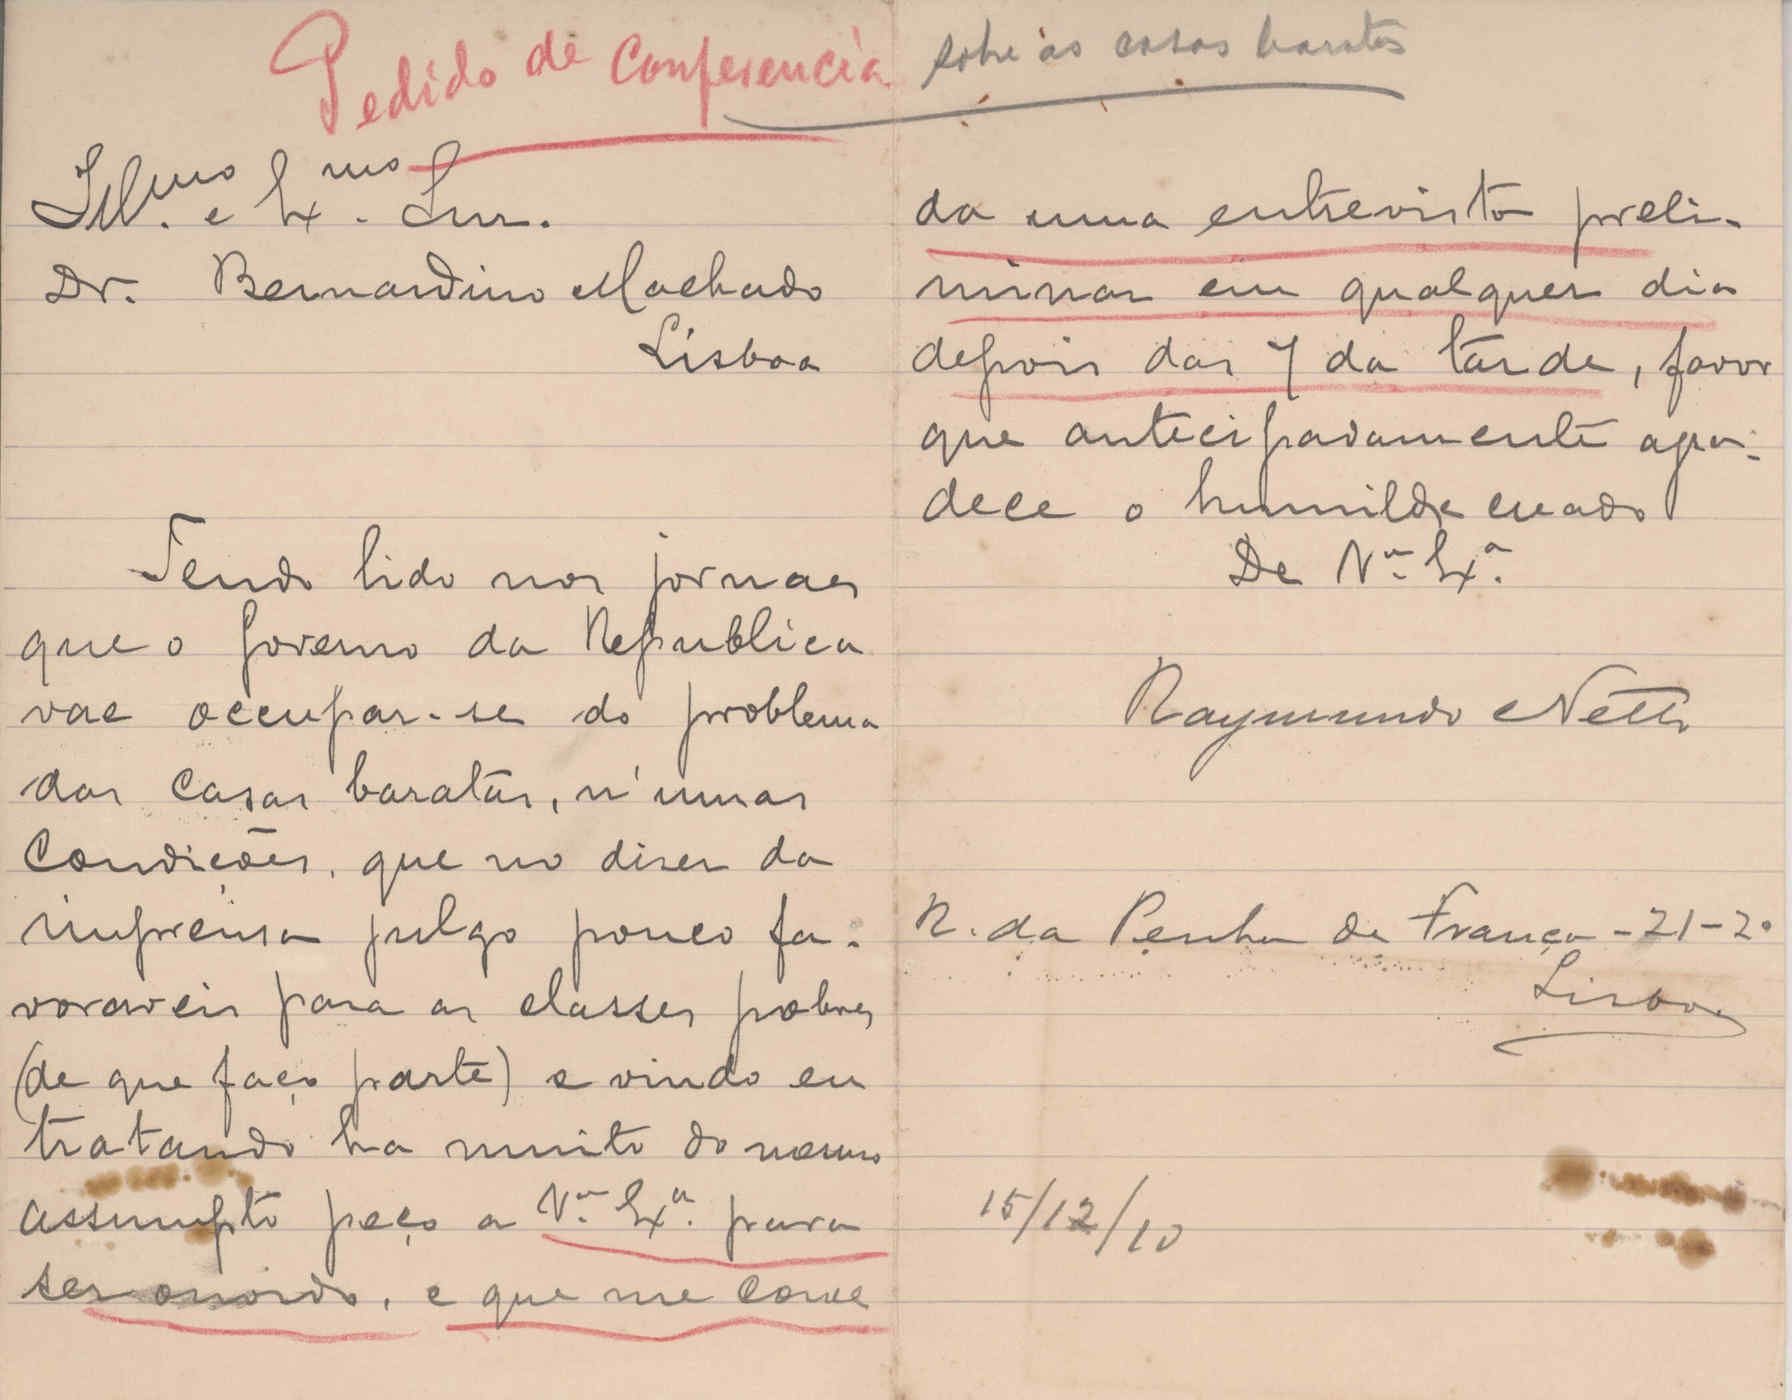 Pedido de Conferencia sobre as casas baratas
Ill.mo e Ex.mo Snr.
Dr. Bernardino Machado
Lisboa
Tendo lido nos jornaes
que o Governo da Republica
vae occupar-se do problema
das casas baratas, n'umas
Condições, que no dizer da
imprensa julgo pouco fa-
voraveis para as classes pobres
(de que faço parte) e vindo eu
tratando ha muito do mesmo
assumpto peço a V.a Ex.a para
ser ouvido, e que me conce
da uma entrevista preli-
minar em qualquer dia
depois das 7 da tarde, favor
que antecipadamente agra-
dece o humilde creado
De V.a Ex.a
Raymundo Netto
R. da Penha de França - 21-2º
Lisboa
15/12/10